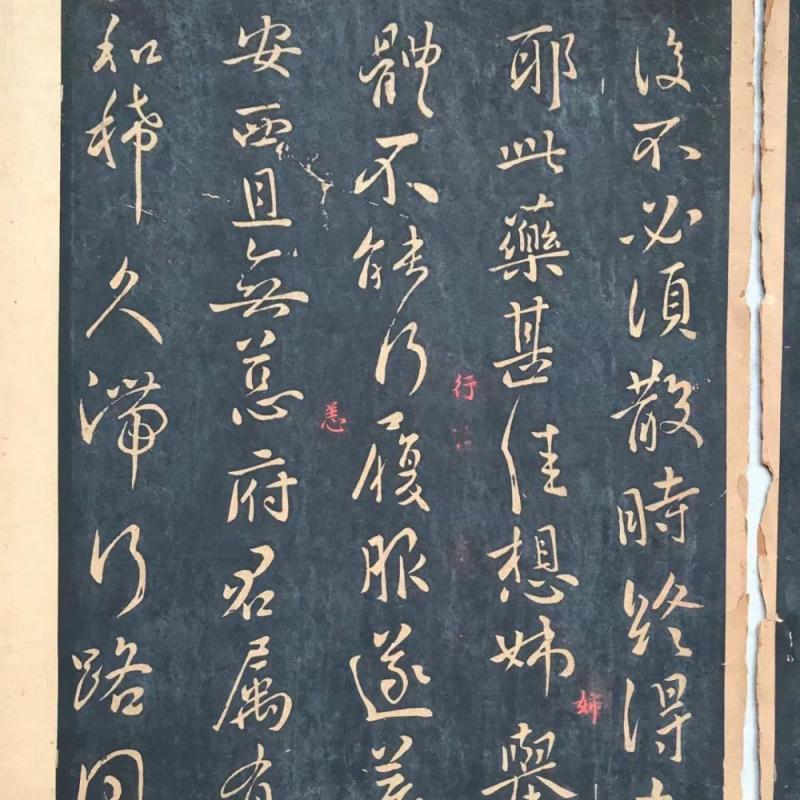 後不必須散時終得
耶此藥甚佳想姊舉
行
姊
體不能行履服遂
恙
安西且無恙府君属有
和稀久滯行路